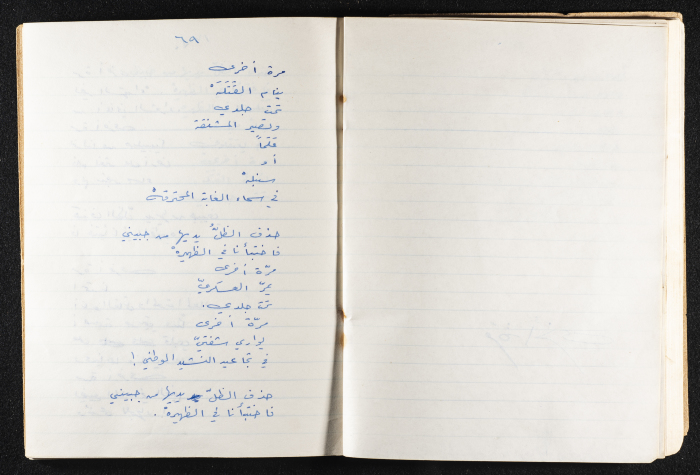 ٦٩
مرة أخرى
ينام القَتَلَهْ
تحت جلدي
وتصير المشنقة
عَلَماً
أو
سنبلهْ
في سماء الغابة المحترقهْ
حذف الظلُّ يديها من جبيني
فاختبأنا في الظهيرهْ
مرّة أخرى
يمرّ العسكريّ
تحت جلدي.
مرّة أخرى
يواري شفتيّ
في تجاعيد النشيد الوطني!
حذف الظلّ يديها من جبيني
فاختبأنا في الظهيرهْ.